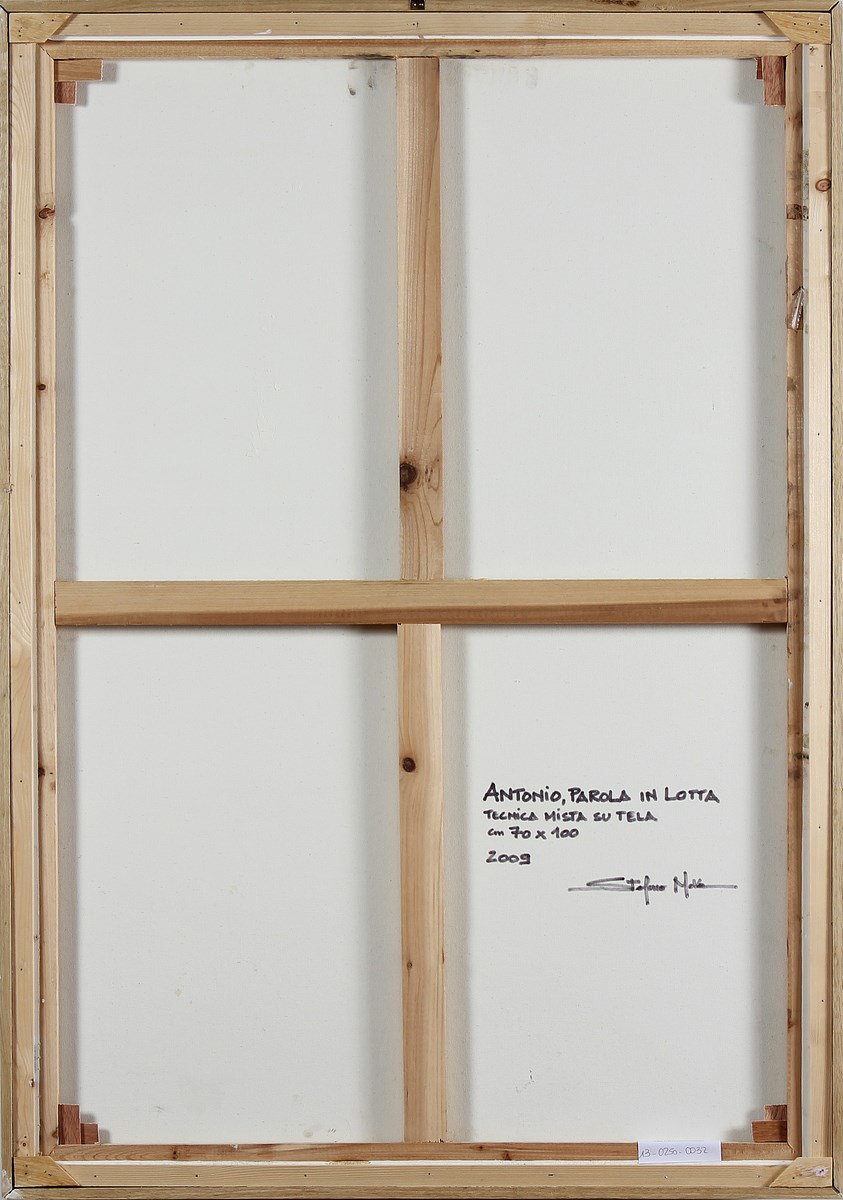 ANTONIO, PAROLA IN LOTTA
TECNICA MISTA SU TELA
cm 70 x 100
2009
Stefano
13-0250-0032